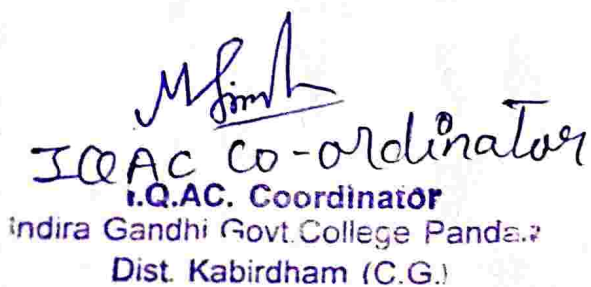 M Singh
IQAC Co-ordinator
I.Q.AC. Coordinator
Indira Gandhi Govt. College
Dist. Kabirdham (C.G.)